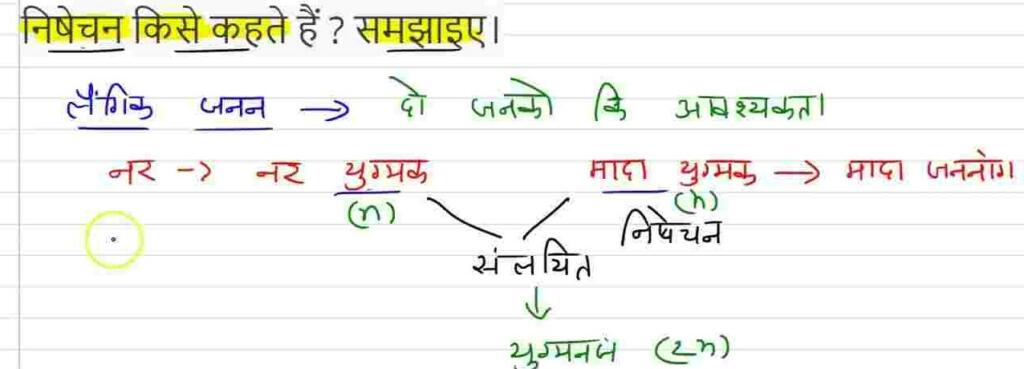 निषेचन किसे कहते हैं? समझाइए।
लैंगिक जनन → दो जनको कि आवश्यकता।
नर -> नर युग्मक मादा युग्मक → मादा जननांग
(n) (n)
निषेचन
संलयित
↓
युग्मनज (2n)